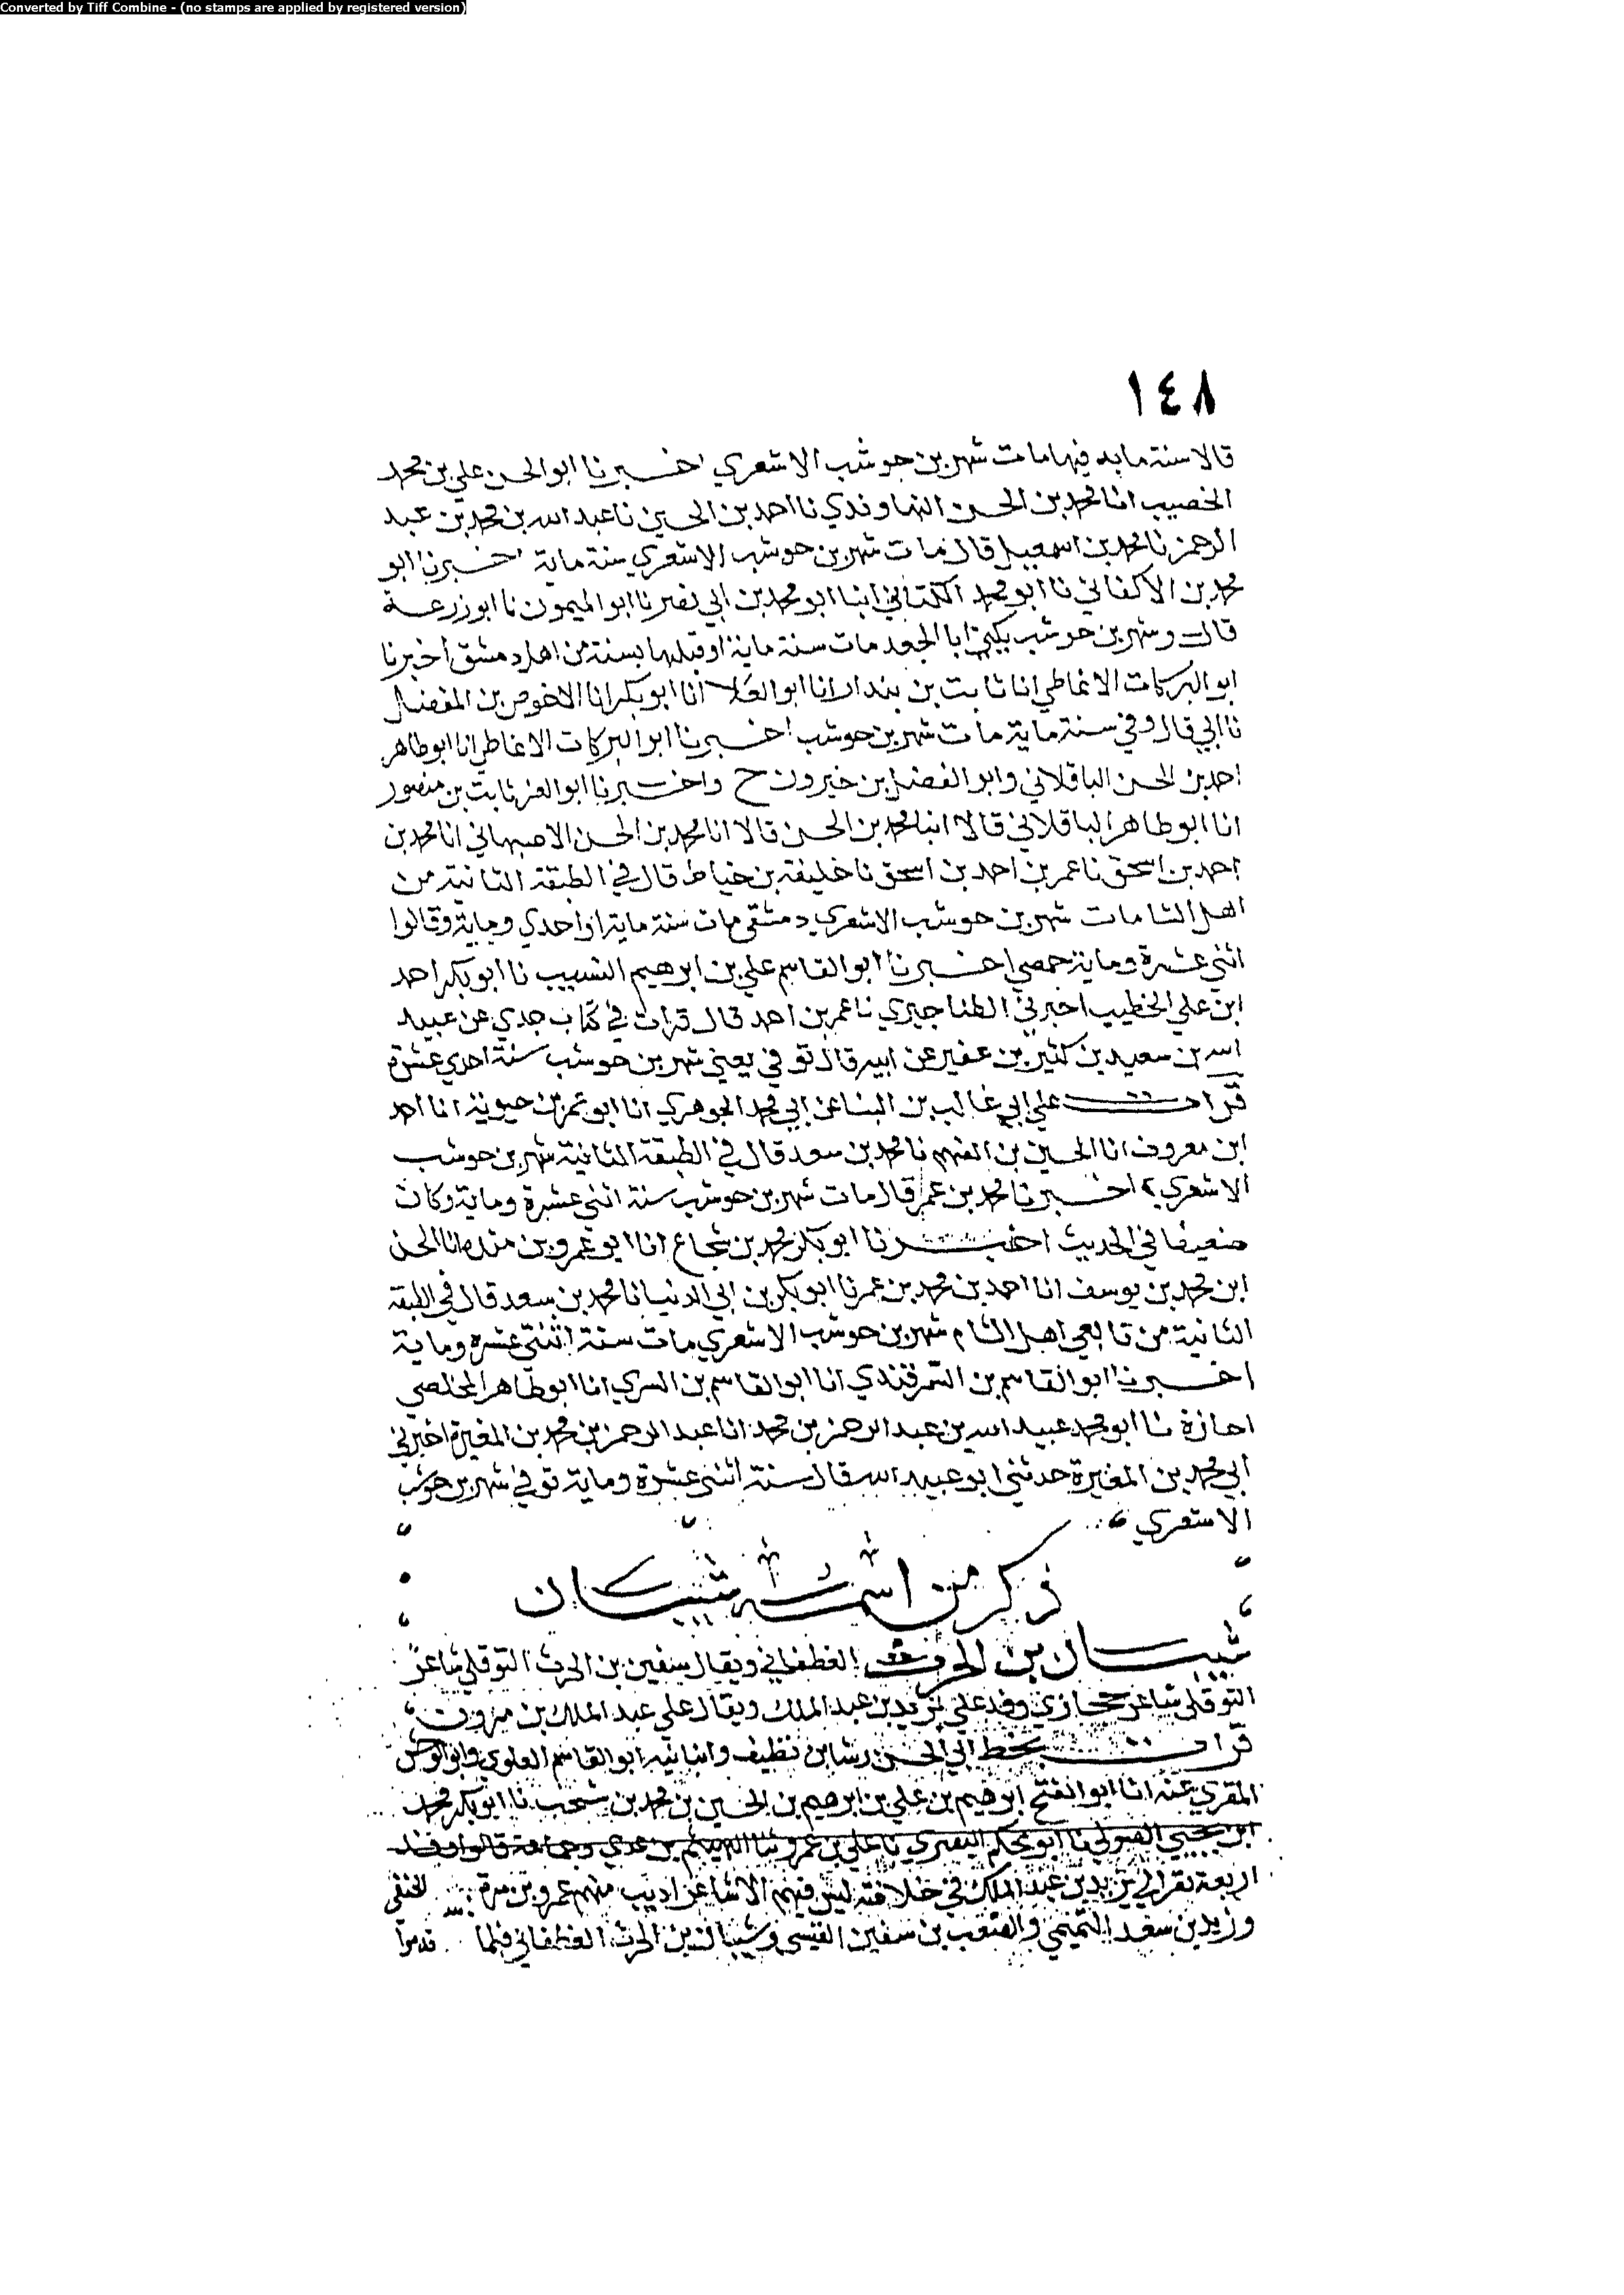 Converted by Tiff Combine - (no stamps are applied by registered version)
١٤٨
قالا سنة مايه فيها مات شهر بن حوشب الاشعري اخبرنا ابو الحسن علي بن محمد
الخصيب انا محمد بن الحسن النهاوندي نا احمد بن الحسين نا عبد الله بن محمد بن عبد
الرحمن نا محمد بن اسمعيل قال مات شهر بن حوشب الاشعري سنة ماية اخبرنا ابو
محمد بن الاكفاني نا ابو محمد الكتاني انبا ابو محمد بن ابي نصر نا ابو الميمون نا ابو زرعة
قال وشهر بن حوشب يكنى ابا الجعد مات سنة ماية او قبلها بسنة من اهل دمشق اخبرنا
ابو البركات الانماطي انا ثابت بن بندار انا ابو العلا انا ابو بكر انا الاحوص بن المفضل
نا ابي قال وفي سنة ماية مات شهر بن حوشب اخبرنا ابو البركات الانماطي انا ابو طاهر
احمد بن الحسن الباقلاني وابو الفضل بن خيرون ح واخبرنا ابو العز ثابت بن منصور
انا ابو طاهر الباقلاني قالا انبا محمد بن الحسن قالا انا محمد بن الحسن الاصبهاني انا محمد بن
احمد بن اسحق نا عمر بن احمد بن اسحق نا خليفة بن خياط قال في الطبقة الثانية من
اهل الشامات شهر بن حوشب الاشعري دمشقي مات سنة ماية او احدي وماية وقالوا
اثنى عشرة وماية حمصي اخبرنا ابو القاسم علي بن ابرهيم النسيب نا ابو بكر احمد
ابن علي الخطيب اخبرني الطناجيري نا عمر بن احمد قال قرات في كتاب جدي عن عبيد
الله بن سعيد بن كثير بن عفير عن ابيه قال توفي يعني شهر بن حوشب سنة احدي عشرة
قرات علي ابي غالب بن البنا عن ابي محمد الجوهري انا ابو عمر بن حيوية انا احمد
ابن معروف انا الحسين بن الفهم نا محمد بن سعد قال في الطبقة الثانية شهر بن حوشب
الاشعري اخبرنا محمد بن عمر قال مات شهر بن حوشب سنة اثنى عشرة وماية وكان
ضعيفا في الحديث اخبرنا ابو بكر محمد بن شجاع انا ابو عمرو بن منده انا الحسن
ابن محمد بن يوسف انا احمد بن محمد بن عمر نا ابو بكر بن ابي الدنيا نا محمد بن سعد قال في الطبقة
الثانية من تابعي اهل الشام شهر بن حوشب الاشعري مات سنة اثنتى عشرة وماية
اخبرنا ابو القاسم بن السمرقندي انا ابو القاسم بن السري انا ابو طاهر المخلصي
اجازة نا ابو محمد عبيد الله بن عبد الرحمن بن محمد انا عبد الرحمن بن محمد بن المغيرة اخبرني
ابي محمد بن المغيرة حدثني ابو عبيد الله قال سنة اثنى عشرة وماية توفي شهر بن حوشب
الاشعري
ذكر من اسمه شيبان
شيبان بن الحرث الغطفاني ويقال سفين بن الحرث التوقلي شاعر
التوقلي شاعر حجازي وفد علي يزيد بن عبد الملك ويقال علي عبد الملك بن مروان
قرات بخط ابي الحسن رشا بن نظيف وانبانيه ابو القاسم العلوي وابو الوحش
المقري عنه انا ابو الفتح ابرهيم بن علي بن ابرهيم بن الحسين بن محمد بن نا ابو بكر محمد
ابن يحيي الصولي نا ابو نا علي بن عمرو نا الهيثم بن عدي وجماعة قالوا وفد
اربعة نفر الي يزيد بن عبد الملك في خلافته ليس فيهم الا شاعر اديب منهم عمرو بن مرة الحنفي
وزيد بن سعد التميمي بن سفين القيسي وشيبان بن الحرث الغطفاني فلما قدموا